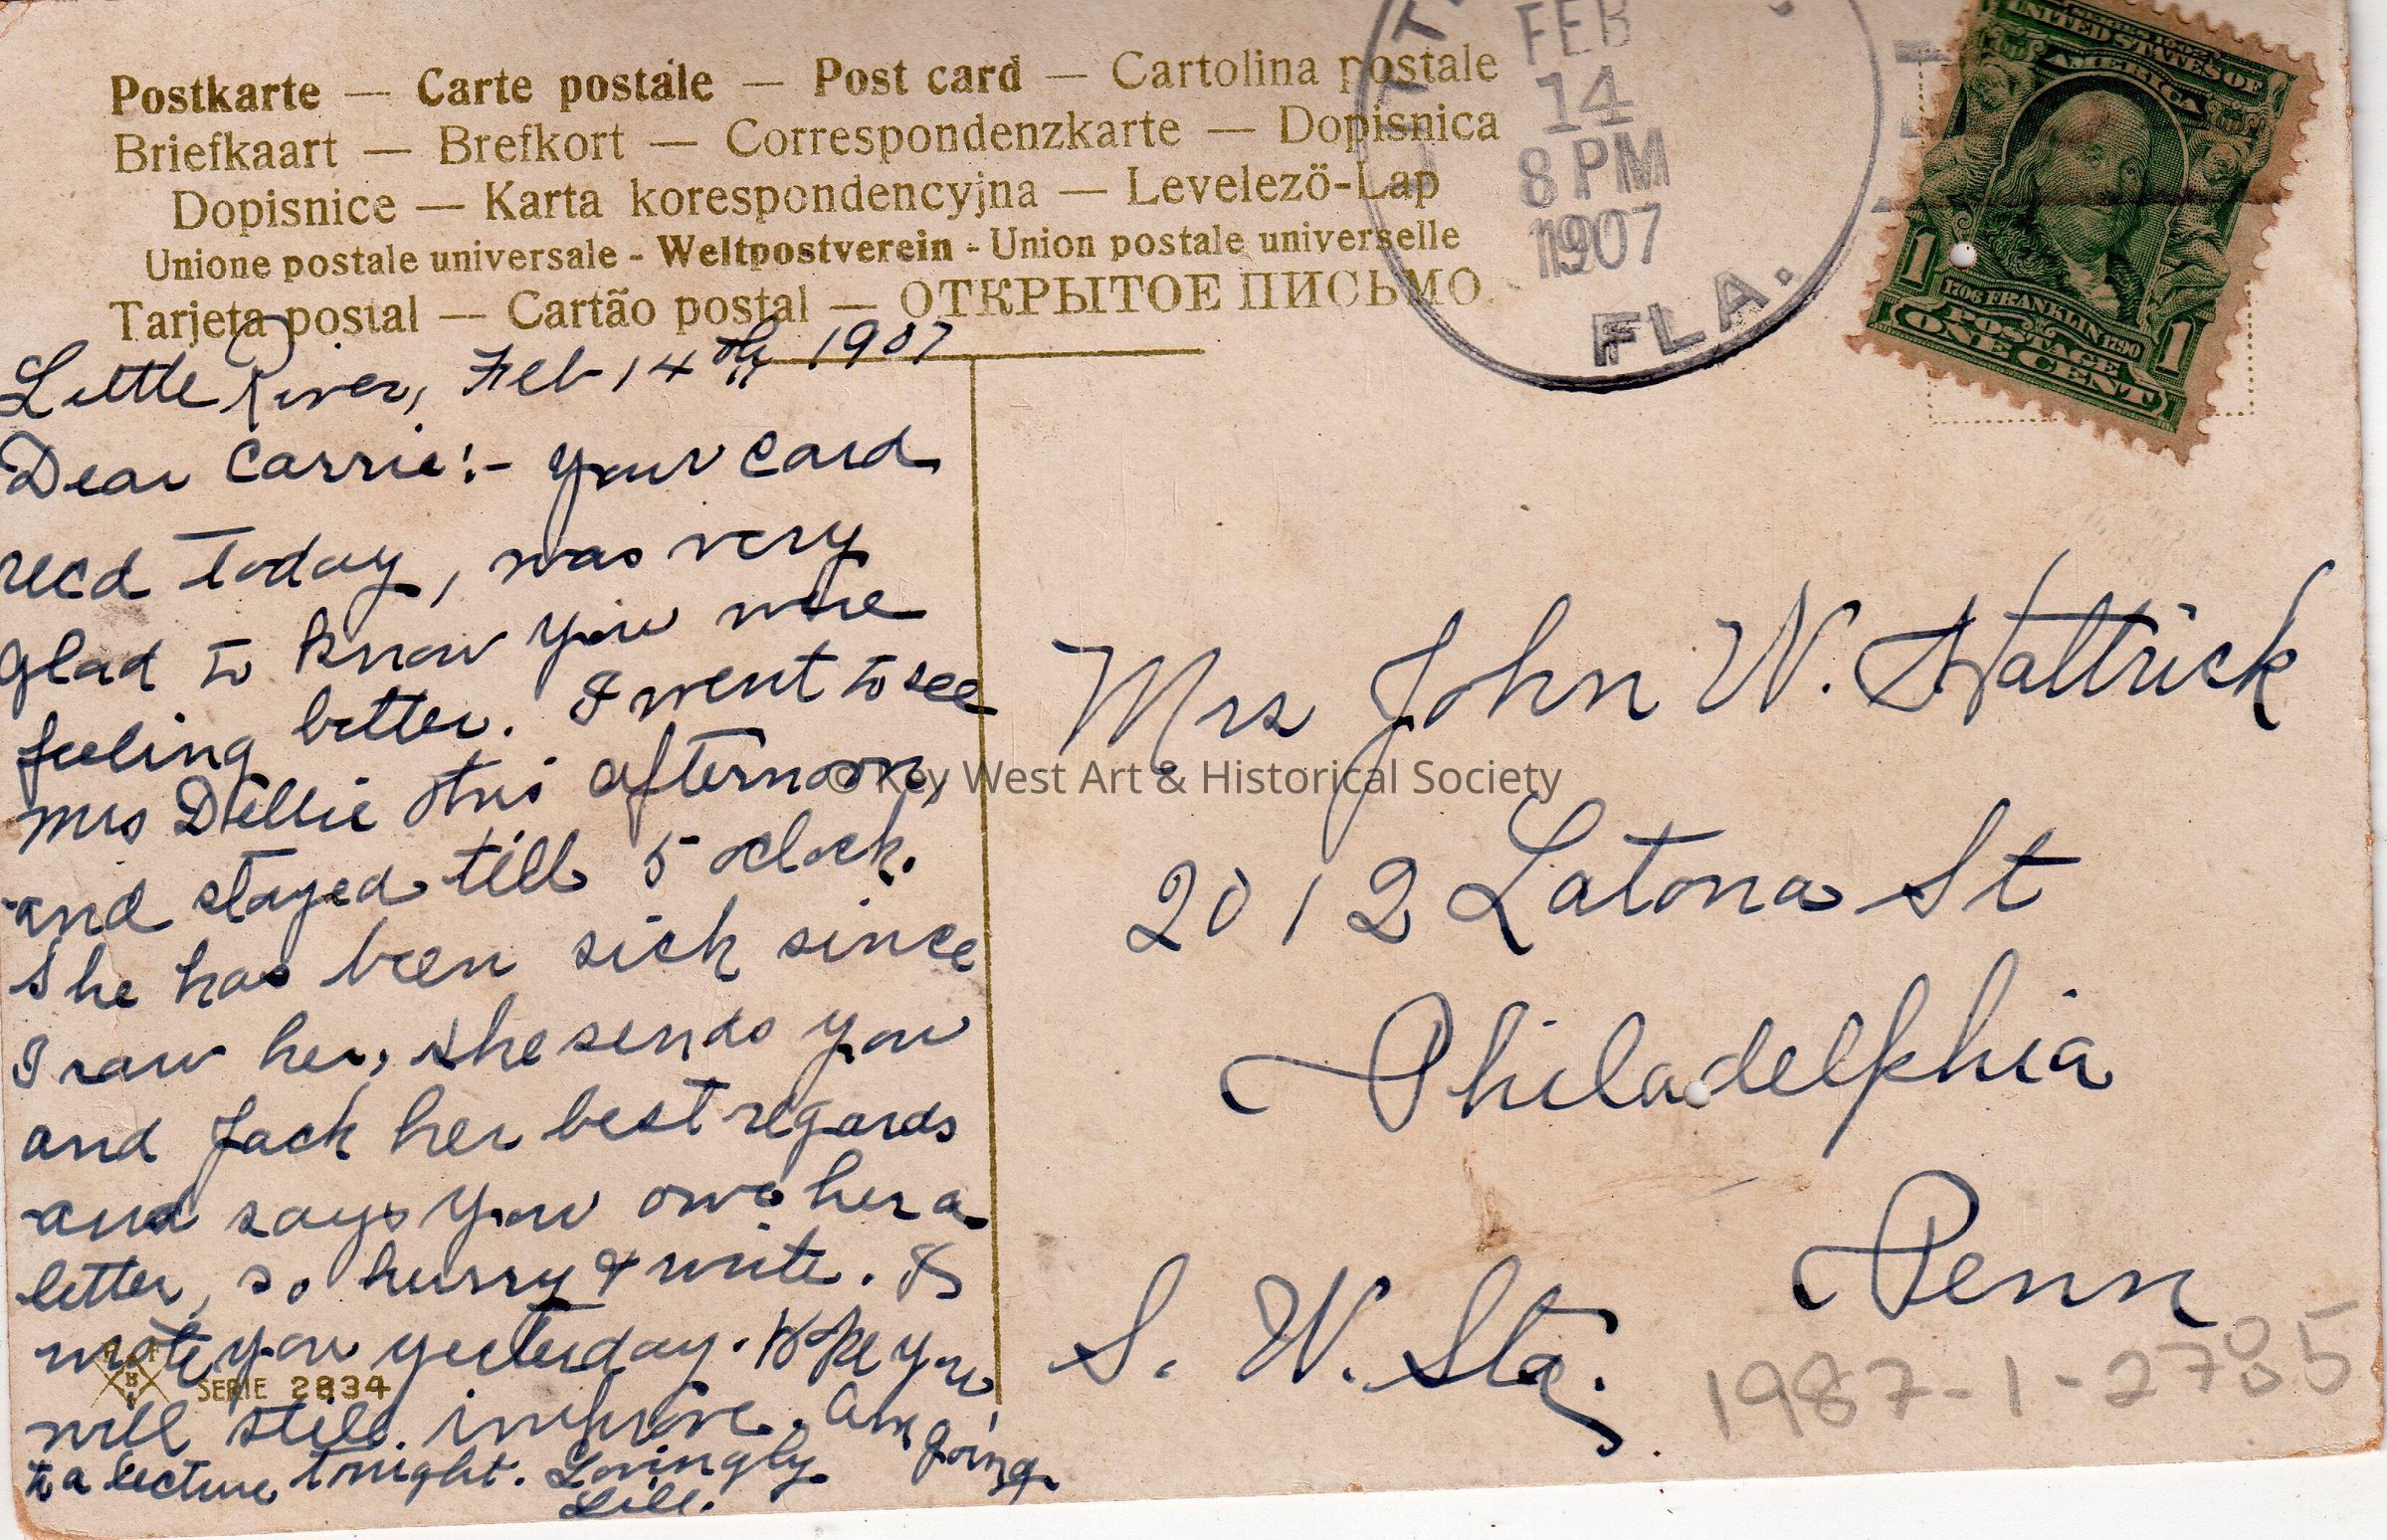 Postkarte — Carte postale — Post card — Cartolina postale
Briefkaart — Brefkort — Correspondenzkarte — Dopisnica
Dopisnice — Karta korespondencyjna — Levelezö-Lap
Unione postale universale - Weltpostverein - Union postale universelle
Tarjeta postal — Cartão postal — ОТКРЫТОЕ ПИСЬМО
FEB
14
8 PM
1907
FLA.
UNITED STATES OF
AMERICA
1706 FRANKLIN 1790
POSTAGE
1 ONE CENT 1
Little River, Feb 14th 1907
Dear Carrie:- Your card
recd today, was very
glad to know you were
feeling better. I went to see
Mrs Dillie this afternoon,
and stayed till 5 oclock.
She has been sick since
I saw her, she sends you
and Jack her best regards
and says you owe her a
letter, so hurry & write. I
wrote you yesterday. Hope you
will still improve. Am going
to a lecture tonight. Lovingly
Lill.
SERIE 2834
Mrs John W. Hattrick
2012 Latona St
Philadelphia
Penn
S. W. Sta.
1987-1-2785
© Key West Art & Historical Society